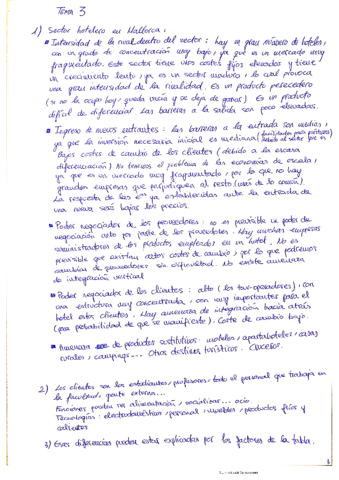 Tema 3
1) Sector hotelero en Mallorca:
• Intensidad de la rivalidad dentro del sector: hay un gran número de hoteles,
con un grado de concentración muy bajo, ya que es un mercado muy
fragmentado. Este sector tiene unos costes fijos elevados y tiene
un crecimiento lento, ya es un sector maduro, lo cual provoca
una gran intensidad de la rivalidad. Es un producto perecedero
(si no la ocupo hoy, queda vacía y se deja de ganar). Es un producto
difícil de diferenciar. Las barreras a la salida son poco elevadas.
• Ingreso de nuevos entrantes: las barreras a la entrada son medias,
ya que la inversión necesaria inicial es mediana
Bajos costes de cambio de los clientes (debido a la escasa
diferenciación). No tenemos el problema de las economías de escala,
ya que es un mercado muy fragmentado, por lo que no hay
grandes empresas que perjudiquen al resto
La respuesta de las ya establecidas ante la entrada de
una nueva será bajar los precios.
• Poder negociador de los proveedores: no es previsible un poder de
negociación alto por parte de los proveedores. Hay muchas empresas
suministradoras de los productos empleados en un hotel. No es
previsible que existan altos costes de cambio, por lo que podremos
cambiar de proveedores sin dificultad. No existe amenaza
de integración vertical
• Poder negociador de los clientes: alto (los tur-operadores), con
una estructura muy concentrada, y son muy importantes para el
hotel estos clientes. Hay amenaza de integración hacia atrás
(poca probabilidad de que se manifieste). Coste de cambio bajo.
• Amenaza de productos sustitutivos: moteles, apartahoteles, casas
rurales, campings... Otros destinos turísticos. Cruceros.
2) Los clientes son los estudiantes, profesores, todo el personal que trabaja en
la facultad, gente externa...
Funciones pueden ser alimentación, socializar... ocio
Tecnologías: electrodomésticos, personal, muebles, productos fríos y
calientes
3) Estas diferencias pueden estar explicadas por los factores de la tabla.